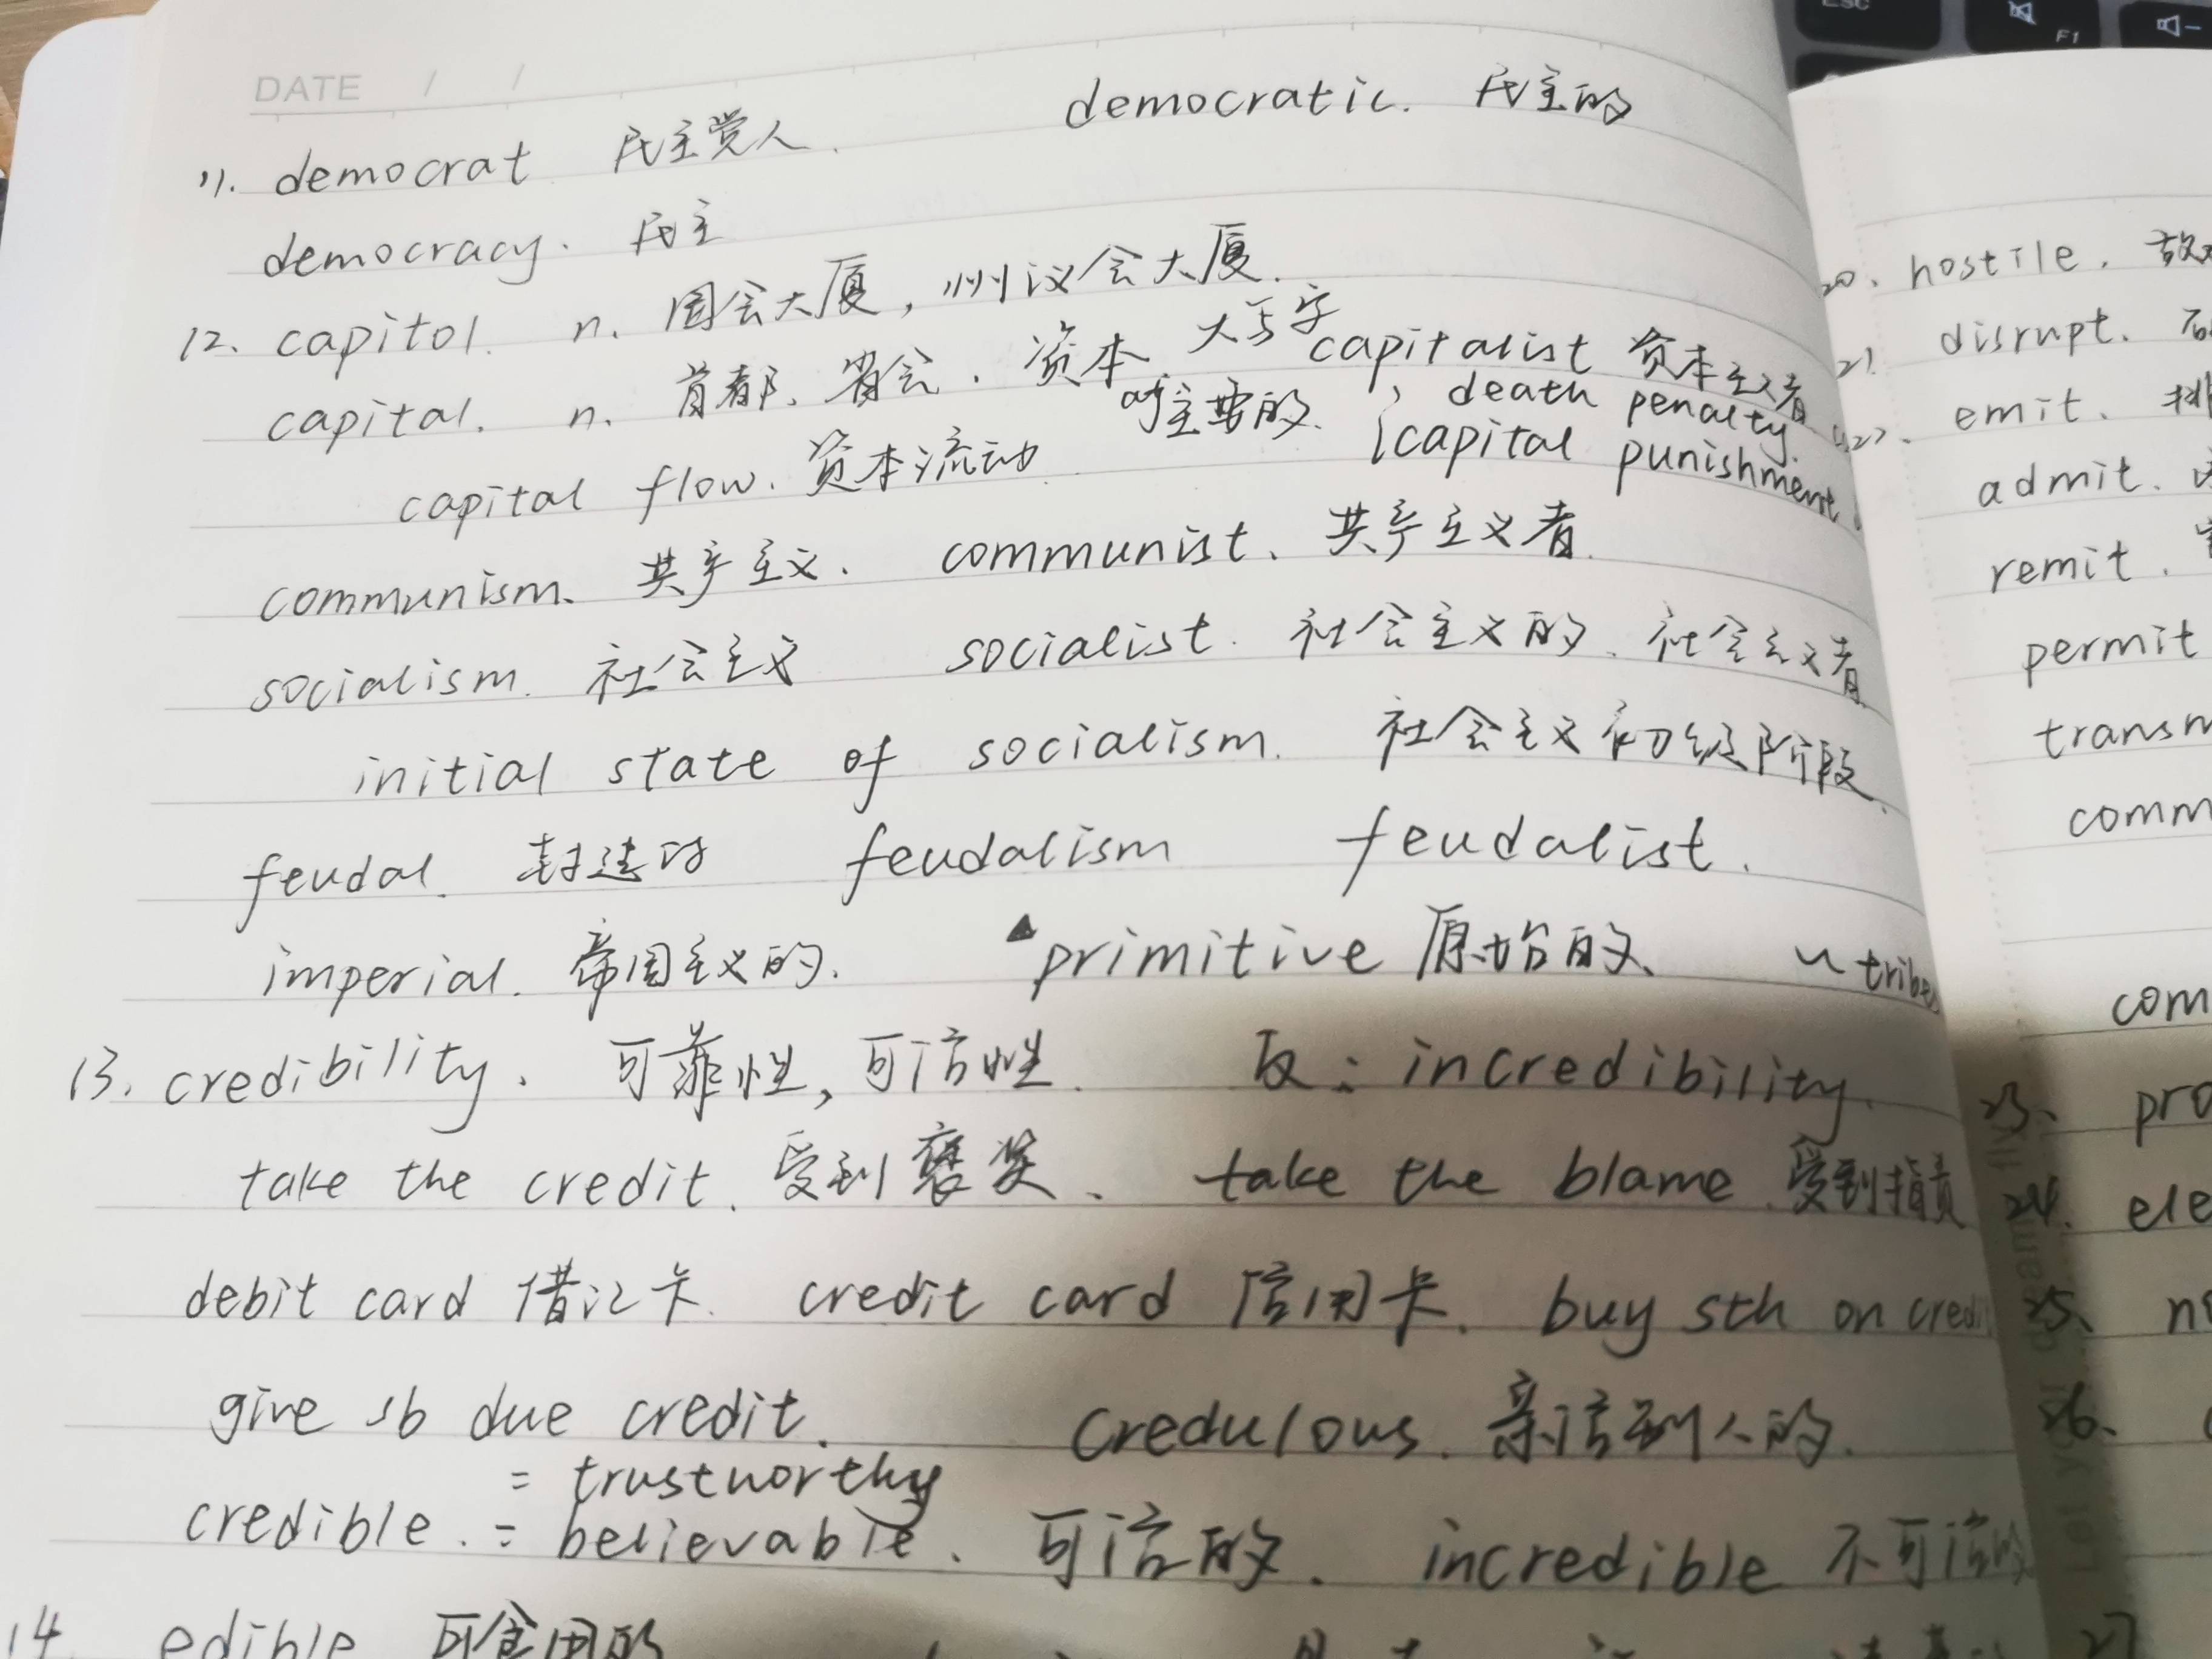 Esc
F1
DATE / /
11. democrat 民主党人. democratic. 民主的
democracy. 民主
12. capitol. n. 国会大厦, 州议会大厦.
capital. n. 首都、省会. 资本 大写字 capitalist 资本主义者
adj 主要的. death penalty.
capital flow. 资本流动 capital punishment
communism、共产主义. communist、共产主义者.
socialism. 社会主义 socialist. 社会主义的、社会主义者
initial state of socialism. 社会主义初级阶段.
feudal. 封建的 feudalism feudalist.
imperial. 帝国主义的. ▲primitive 原始的、 ~ tribe
13. credibility. 可靠性, 可信性. 反: incredibility.
take the credit. 受到褒奖、 take the blame. 受到指责
debit card 借记卡. credit card 信用卡. buy sth on credi
give sb due credit. credulous. 亲信别人的.
= trustworthy
credible. = believable. 可信的. incredible 不可信的
14. edible 可食用的
20. hostile.
21. disrupt.
22. emit.
admit.
remit.
permit
transm
comm
com
23. pro
24. ele
25.
26.
27